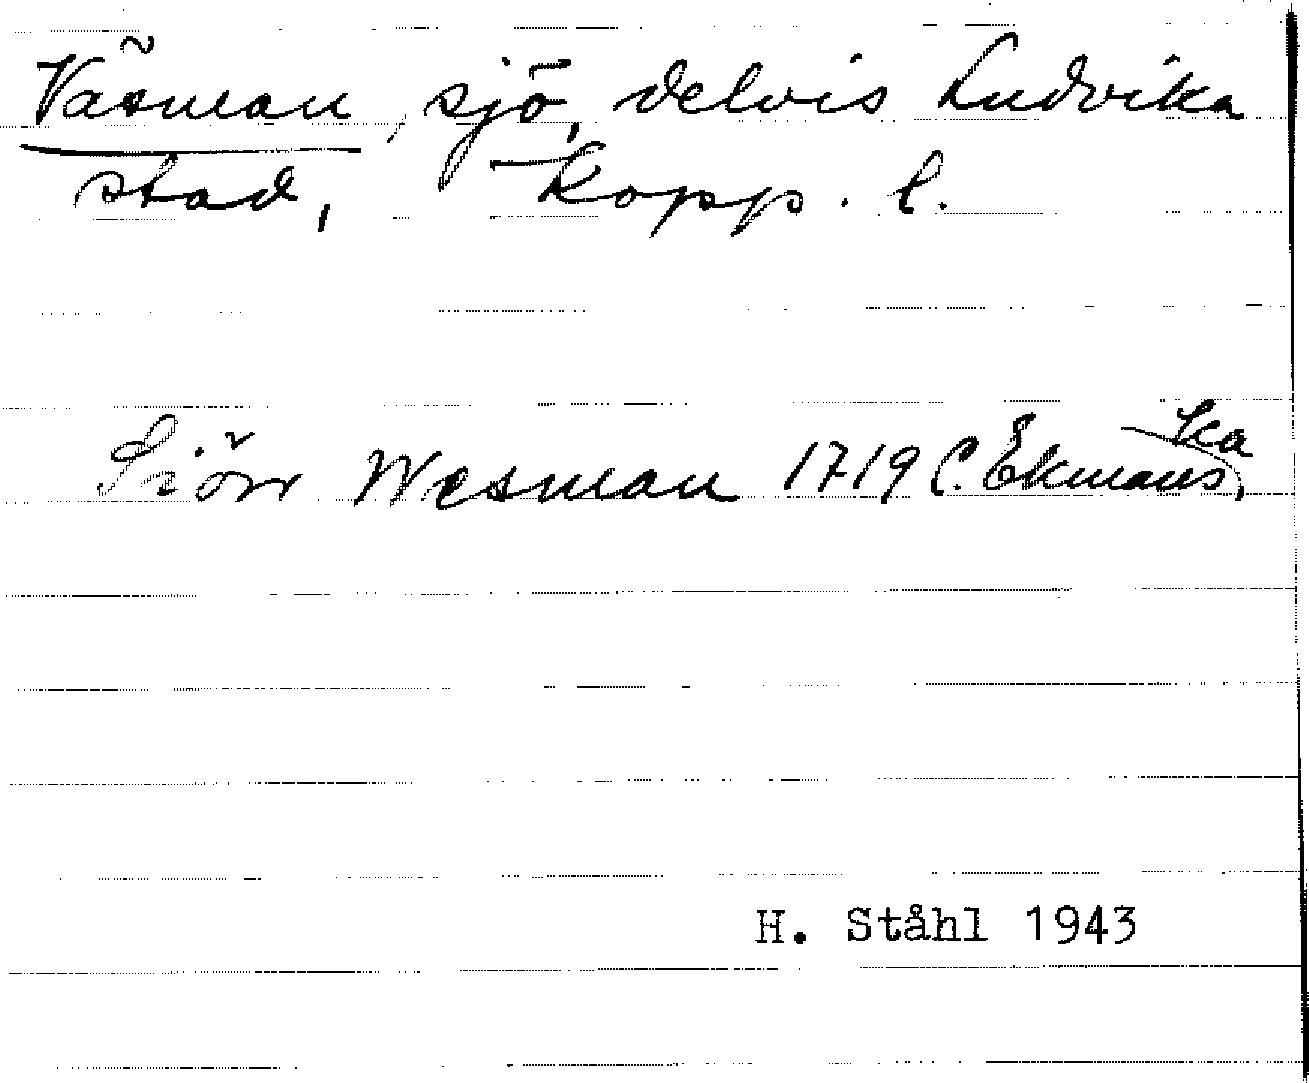 Väsman, sjö, delvis Ludvika
stad, Kopp. l.
Siön Wesman 1719 C. Ekmans ka
H. Ståhl 1943